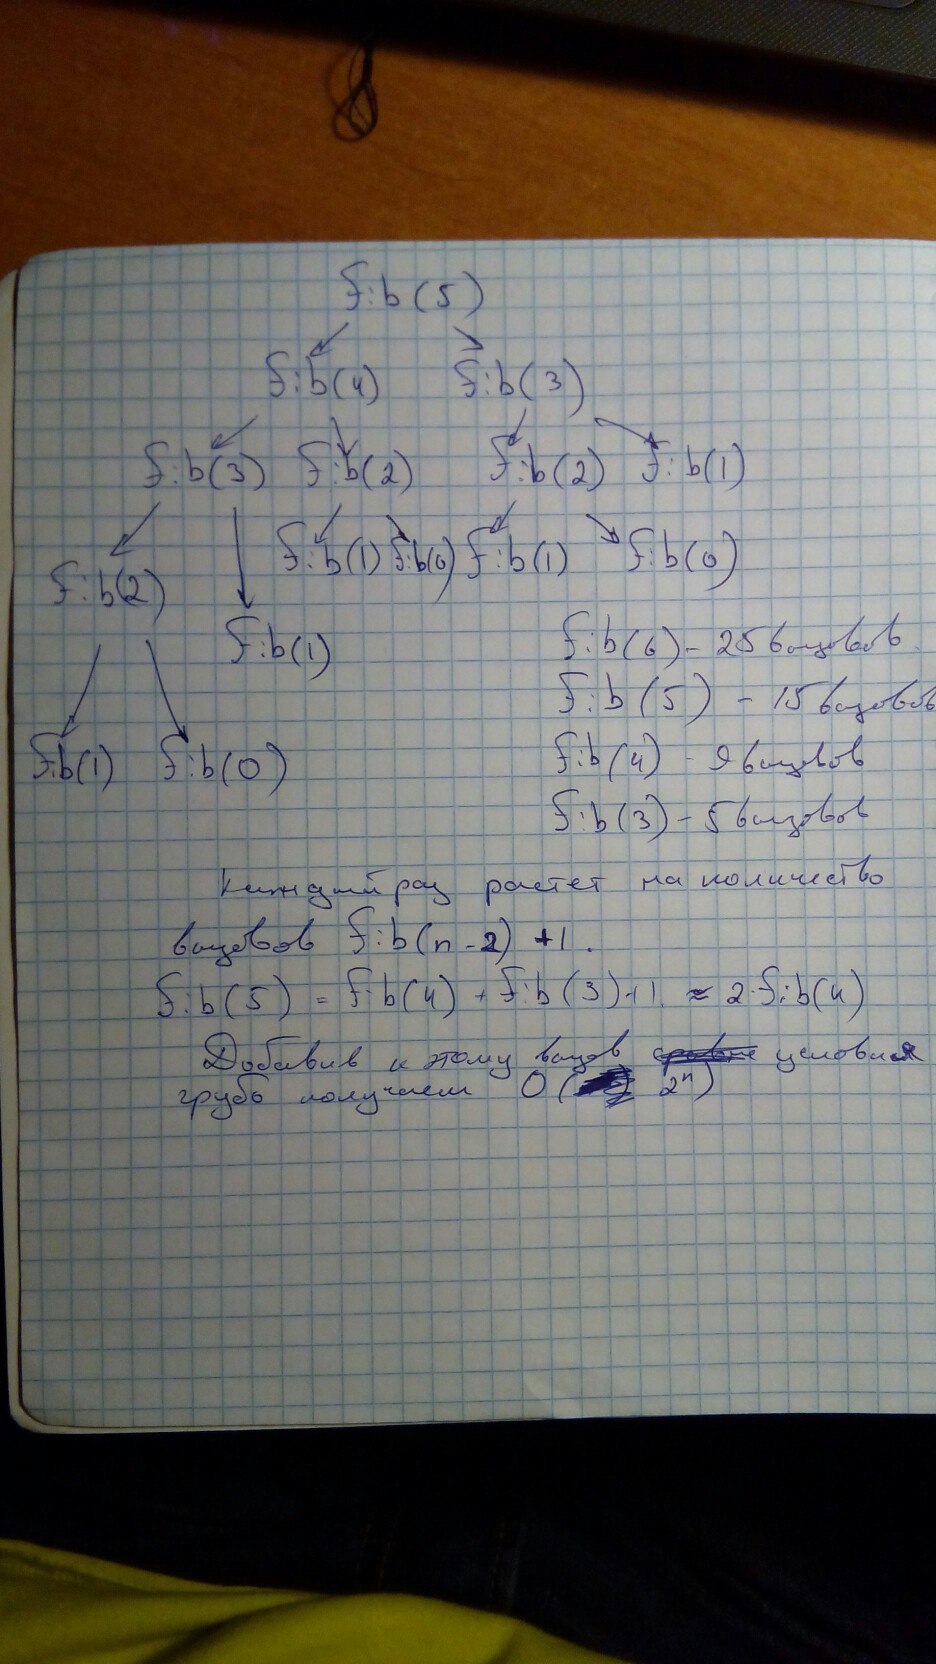 fib(5)
fib(4) fib(3)
fib(3) fib(2) fib(2) fib(1)
fib(2) fib(1) fib(0) fib(1) fib(0)
fib(1)
fib(1) fib(0)
fib(6) - 25 вызовов.
fib(5) - 15 вызовов
fib(4) - 9 вызовов
fib(3) - 5 вызовов
Каждый раз растет на количество
вызовов fib(n-2) +1.
fib(5) = fib(4) + fib(3)+1 ≈ 2·fib(4)
Добавив к этому вызов условия
грубо получаем O( 2ⁿ)